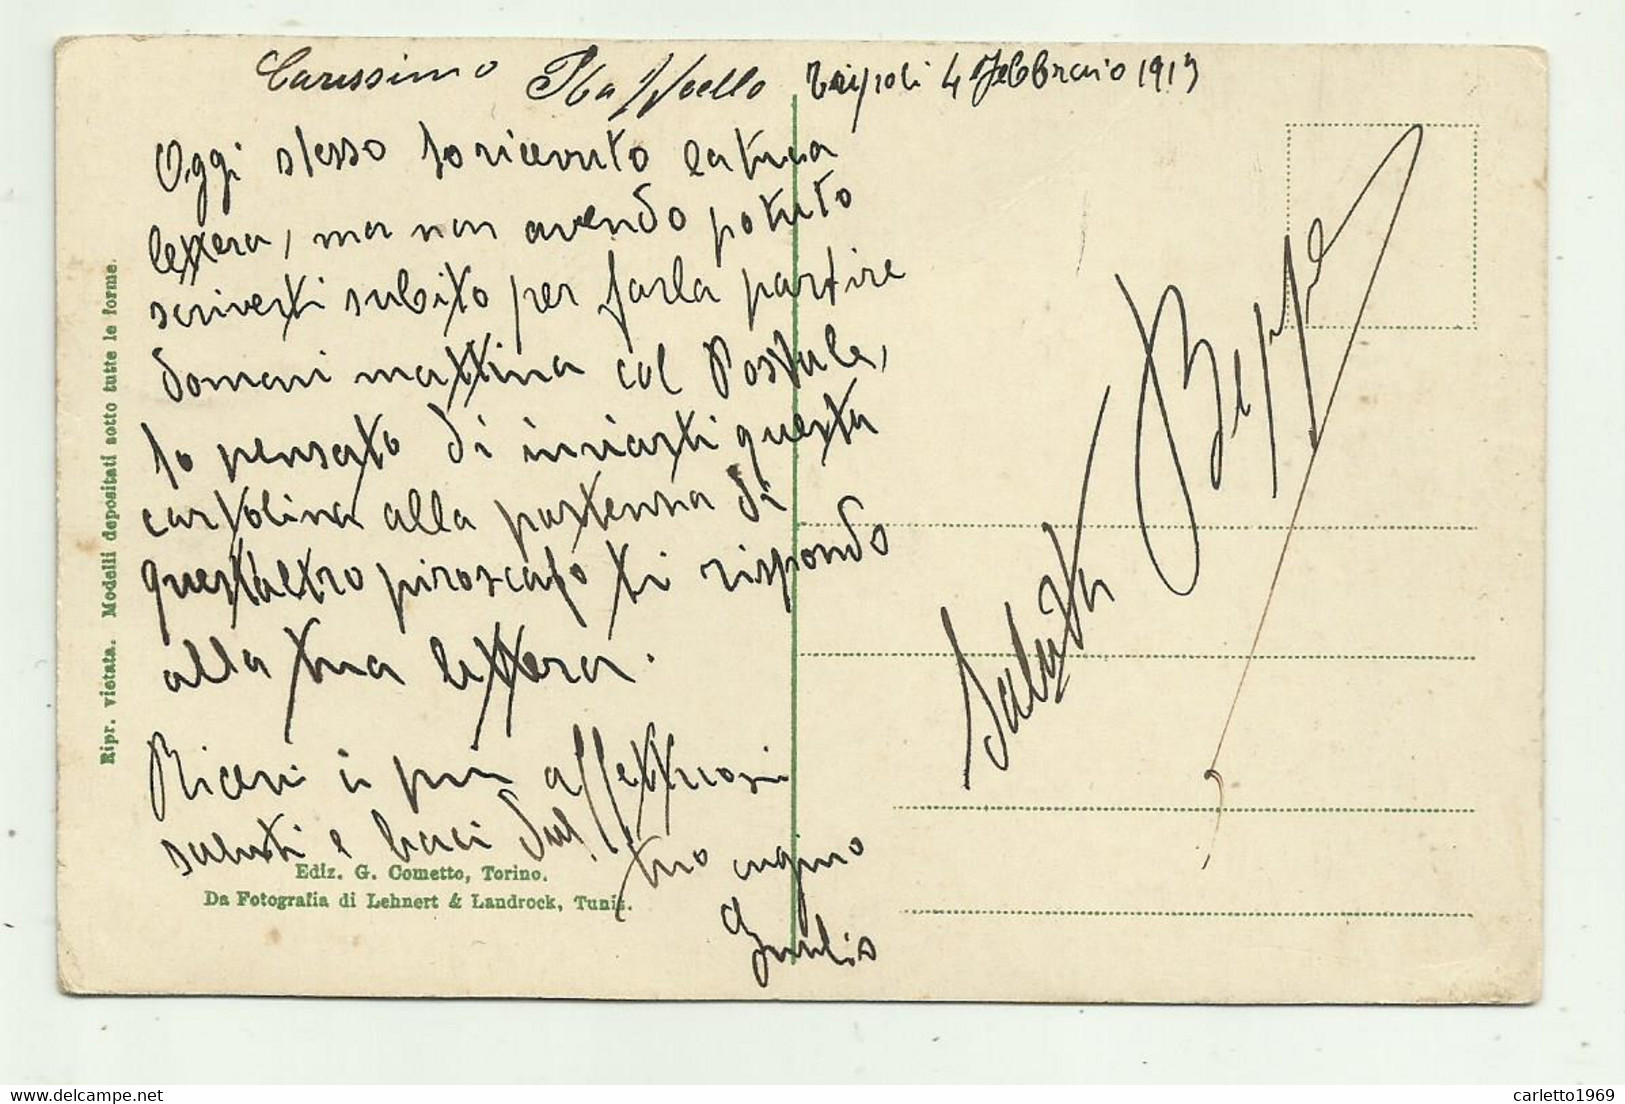 Carissimo Raffaello Tripoli 4 Febbraio 1913
Oggi stesso ho ricevuto la tua
lettera, ma non avendo potuto
scriverti subito per farla partire
domani mattina col Postale,
ho pensato di inviarti questa
cartolina alla partenza di
quest'altro piroscafo ti rispondo
alla tua lettera.
Ricevi i più affettuosi
saluti e baci dal
tuo cugino
Giulio
Saluta Beppe
Ripr. vietata. Modelli depositati sotto tutte le forme.
Ediz. G. Cometto, Torino.
Da Fotografia di Lehnert & Landrock, Tunis.
carletto1969